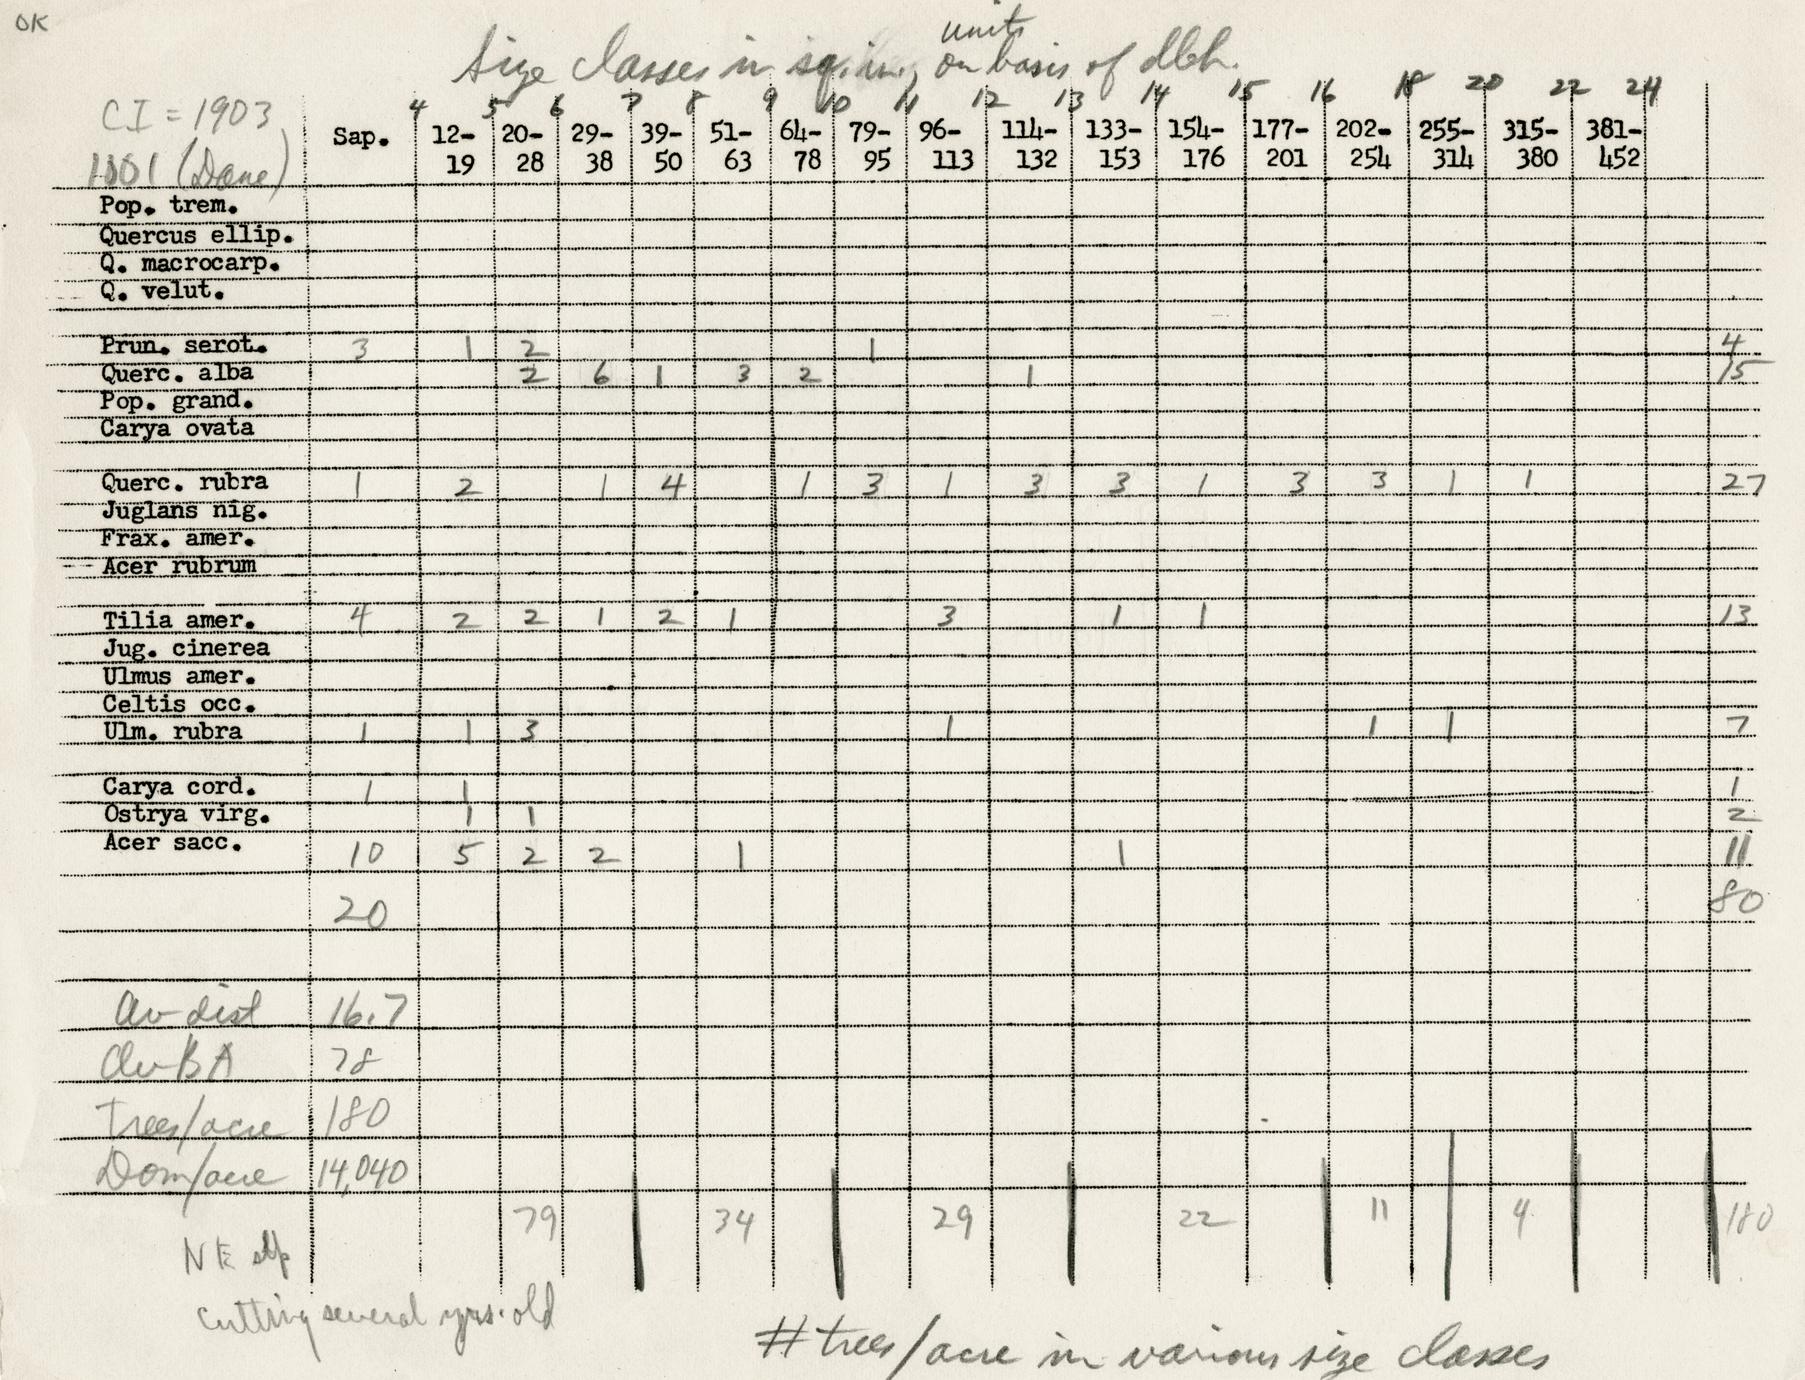 OK
units
Size classes in sq. in., on basis of dbh.
CI = 1903
4 5 6 7 8 9 10 11 12 13 14 15 16 18 20 22 24
Sap. 12- 20- 29- 39- 51- 64- 79- 96- 114- 133- 154- 177- 202- 255- 315- 381-
(Dane) 19 28 38 50 63 78 95 113 132 153 176 201 254 314 380 452
Pop. trem.
Quercus ellip.
Q. macrocarp.
Q. velut.
Prun. serot. 3 1 2 1 4
Querc. alba 2 6 1 3 2 1 15
Pop. grand.
Carya ovata
Querc. rubra 1 2 1 4 1 3 1 3 3 1 3 3 1 1 27
Juglans nig.
Frax. amer.
Acer rubrum
Tilia amer. 4 2 2 1 2 1 3 1 1 13
Jug. cinerea
Ulmus amer.
Celtis occ.
Ulm. rubra 1 1 3 1 1 1 7
Carya cord. 1 1 1
Ostrya virg. 1 1 2
Acer sacc. 10 5 2 2 1 1 11
20 80
Av dist 16.7
Av BA 78
Trees/acre 180
Dom/acre 14,040
79 34 29 22 11 4 180
NE slp
cutting several yrs. old
# trees/acre in various size classes